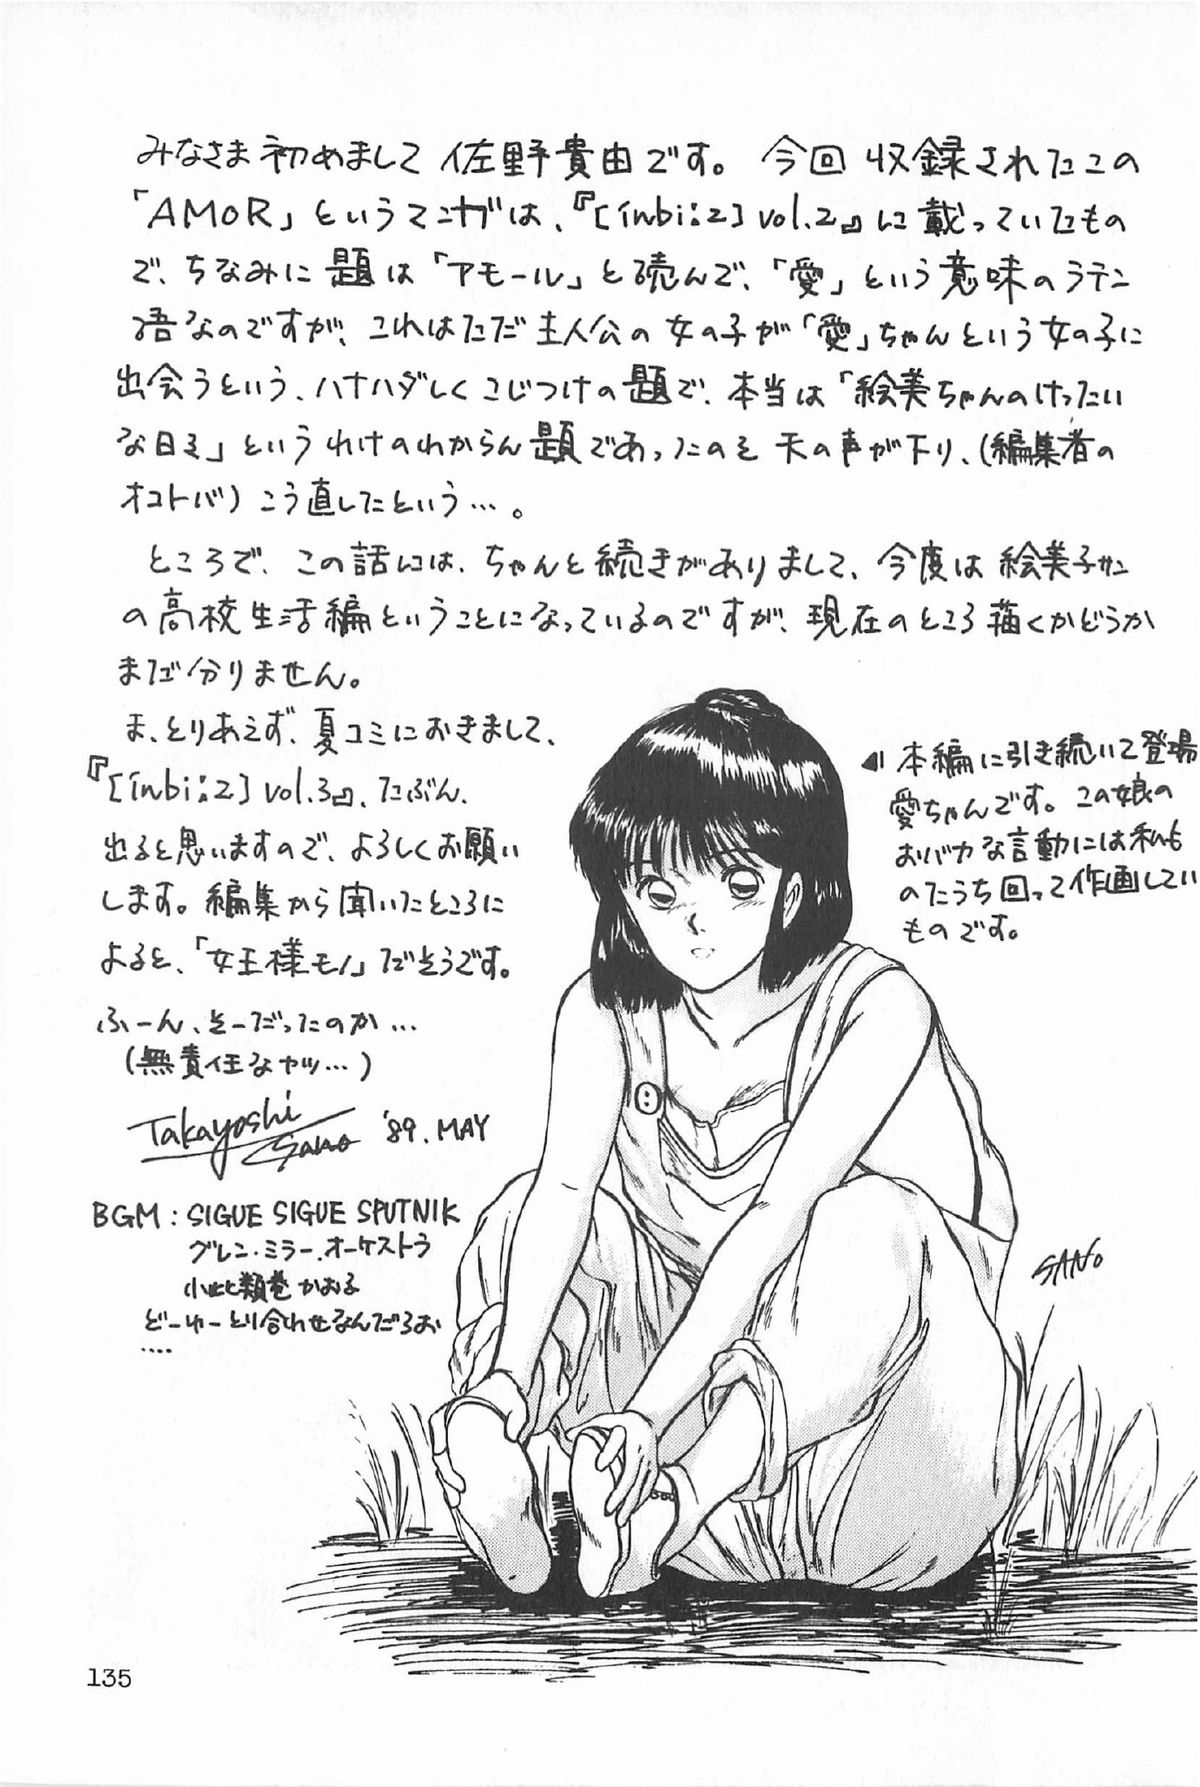 みなさま初めまして佐野貴由です。今回収録されたこの
「AMOR」というマンガは、『[inbi:z] vol.2』に載っていたもの
で、ちなみに題は「アモール」と読んで、「愛」という意味のラテン
語なのですが、これはただ主人公の女の子が「愛」ちゃんという女の子に
出会うという、ハナハダしくこじつけの題で、本当は「絵美ちゃんのけったい
な日々」というわけのわからん題であったのを天の声が下り、(編集者の
オコトバ)こう直したという…。
ところで、この話には、ちゃんと続きがありまして、今度は絵美子サン
の高校生活編ということになっているのですが、現在のところ描くかどうか
まだ分りません。
ま、とりあえず、夏コミにおきまして、
『[inbi:z] vol.3』、たぶん、
出ると思いますので、よろしくお願い
します。編集から聞いたところに
よると、「女王様モノ」だそうです。
ふーん、そーだったのか…
(無責任なヤツ…)
Takayoshi
Sano '89. MAY
BGM:SIGUE SIGUE SPUTNIK
グレン・ミラー・オーケストラ
小比類巻かおる
どーゆーとり合わせなんだろお
....
◀本編に引き続いて登場
愛ちゃんです。この娘の
おバカな言動には私も
のたうち回って作画してい
ものです。
SANO
135